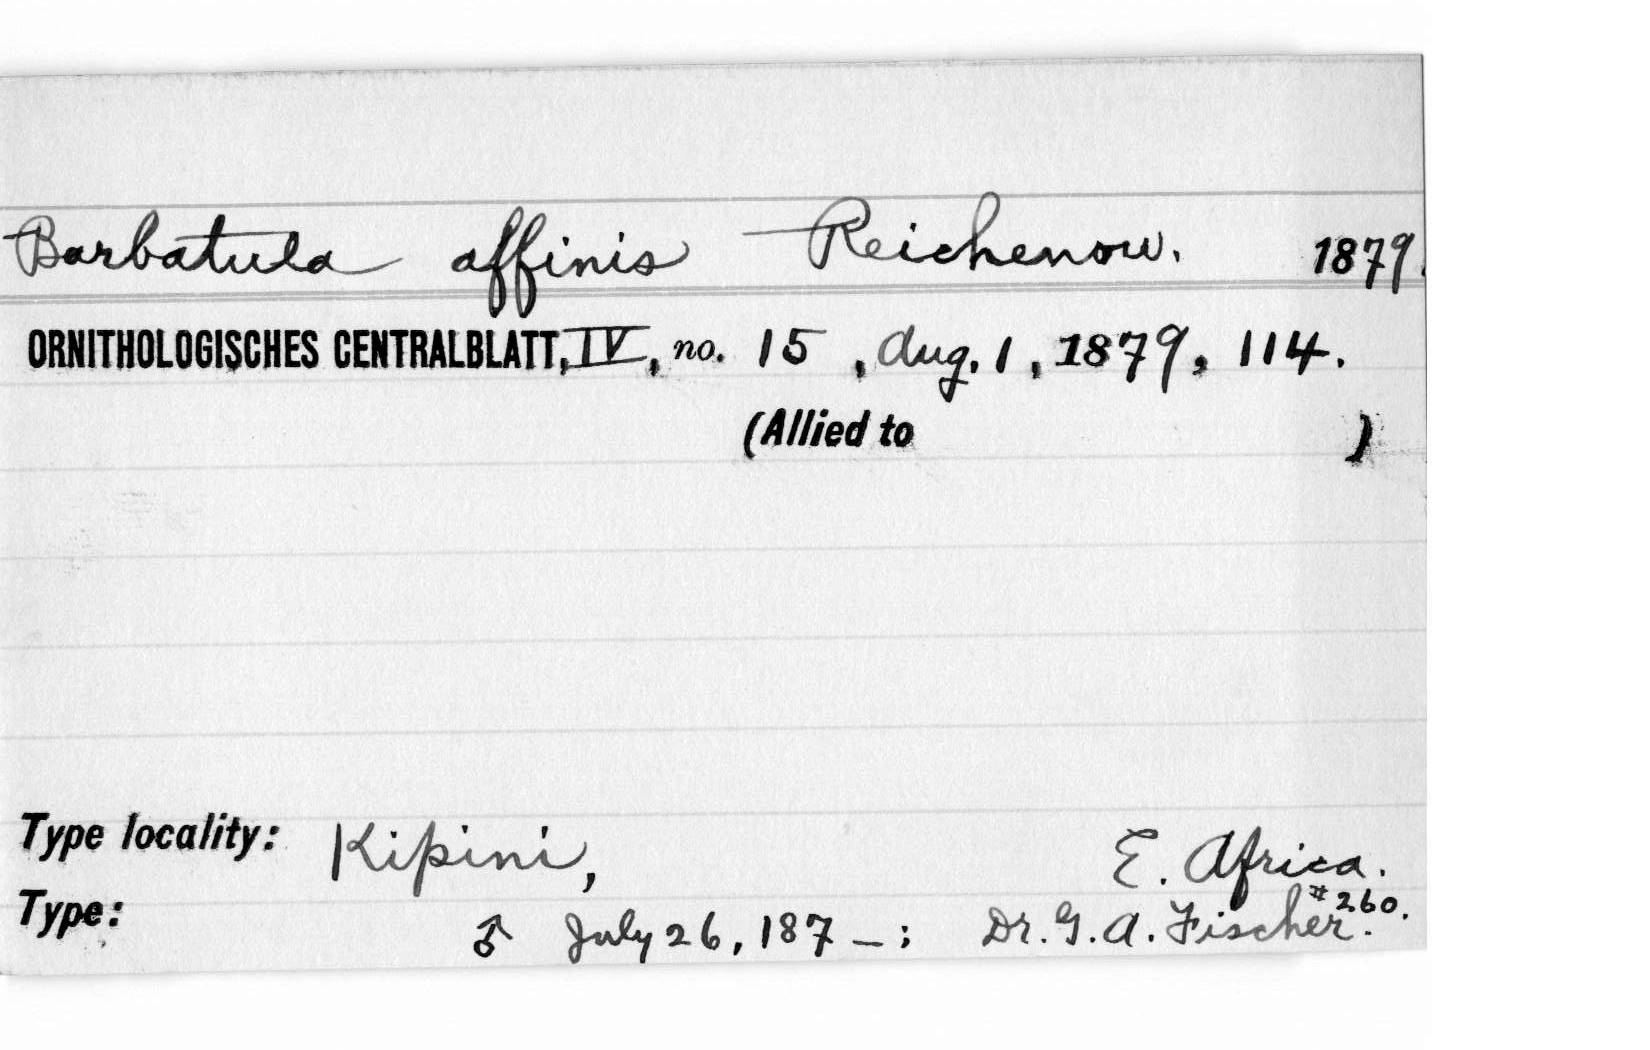 Barbatula affinis Reichenow. 1879.
ORNITHOLOGISCHES CENTRALBLATT, IV, no. 15, Aug. 1, 1879, 114.
(Allied to )
Type locality: Kipini, E. Africa.
Type: ♂ July 26, 187_; Dr. G. A. Fischer. #260.